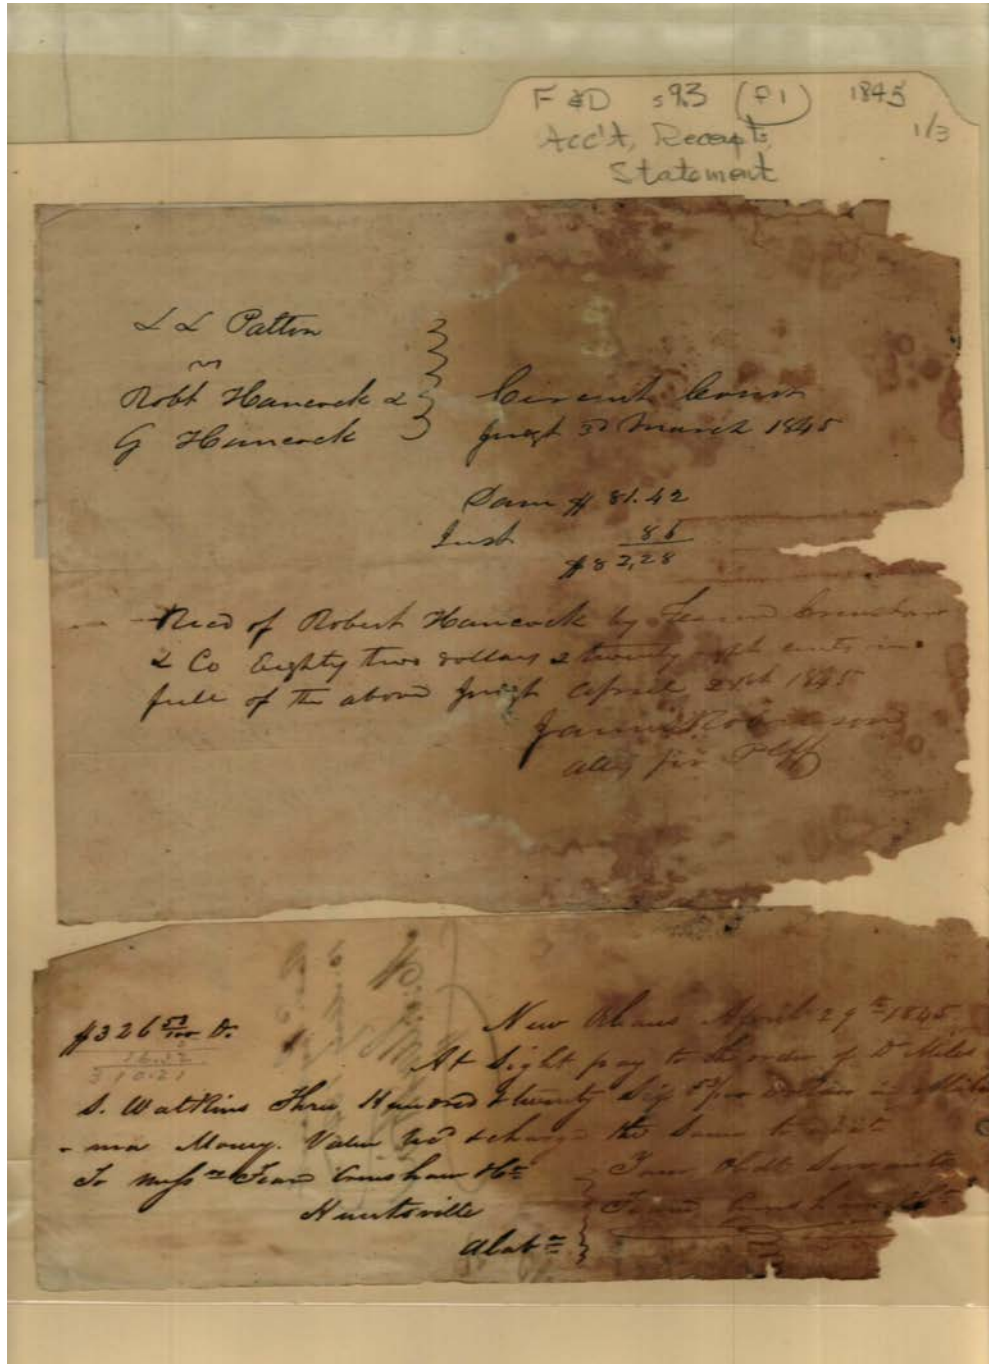 F & D s93 (f1) 1845
1/3
Acc't, Receipts,
Statement
L L Patton
vs
Robt Hancock &
G Hancock
Circuit Court
Jugt 3d March 1845
Dam $ 81.42
Inst 86
$82,28
Recd of Robert Hancock by Fearn Crenshaw
& Co Eighty two dollars & twenty eight cents in
full of the above Jugt April 21st 1845
James Robinson
atty for Plff
$326 53/100 D.
16.32
310.21
New Orleans April 29th 1845
At Sight pay to the order of Dr Miles
S. Watkins Three Hundred & twenty Six 53/100 dollars in Alaba
-ma Money. Value Recd & charge the Same to acct
To Messrs Fearn Crenshaw & Co Your Obdt Servants
Huntsville Fearn Crenshaw & Co
Alaba